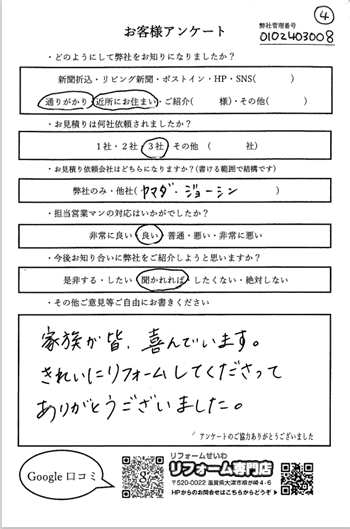 ④
お客様アンケート
弊社管理番号
0102403008
・どのようにして弊社をお知りになりましたか？
新聞折込・リビング新聞・ポストイン・HP・SNS(　　　)
通りがかり・近所にお住まい・ご紹介(　　　様)・その他(　　　)
・お見積りは何社依頼されましたか？
1社・2社・3社・その他 (　　　社)
・お見積り依頼会社はどちらになりますか？(書ける範囲で結構です)
弊社のみ・他社( ヤマダ・ジョーシン )
・担当営業マンの対応はいかがでしたか？
非常に良い・良い・普通・悪い・非常に悪い
・今後お知り合いに弊社をご紹介しようと思いますか？
是非する・したい・聞かれれば・したくない・絶対しない
・その他ご意見等ご自由にお書きください
家族が皆、喜んでいます。
きれいにリフォームしてくださって
ありがとうございました。
アンケートのご協力ありがとうございました
Google 口コミ
リフォームせいわ
リフォーム専門店
〒520-0022 滋賀県大津市柳が崎4-6
HPからのお問合せはこちらからどうぞ